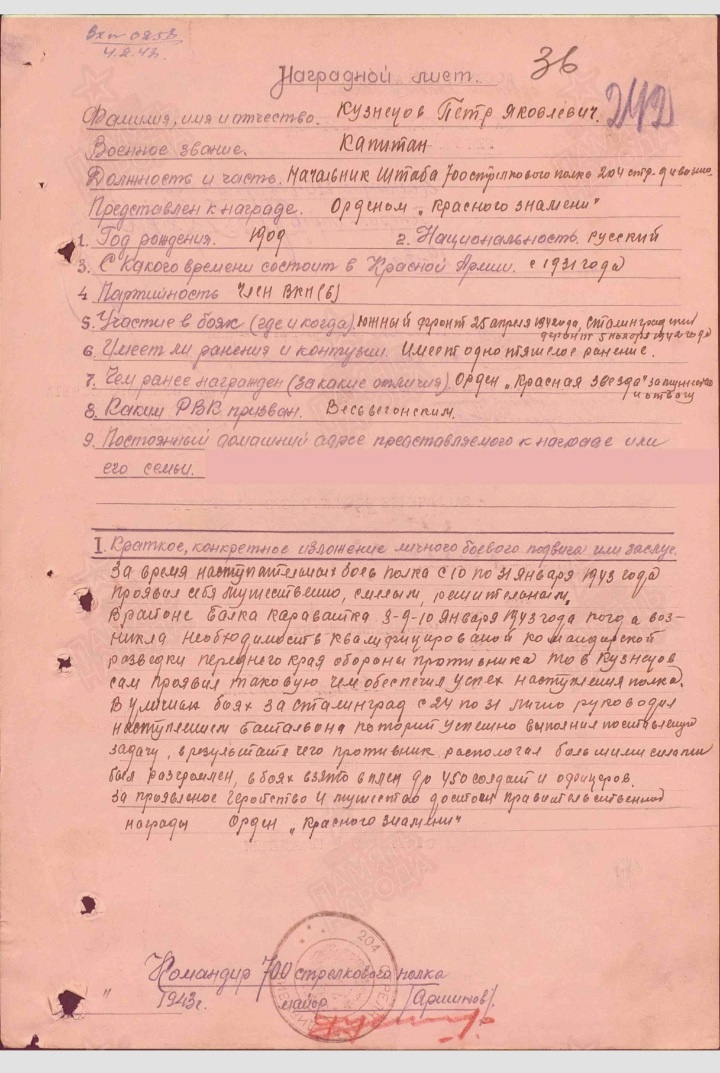 Вх № 0253
4.2.43.
36
242
Наградной лист.
Фамилия, имя и отчество. Кузнецов Петр Яковлевич.
Военное звание. Капитан
Должность и часть. Начальник Штаба 700 стрелкового полка 204 стр. дивизии.
Представлен к награде. Орденом „Красного знамени"
1. Год рождения. 1909 2. Национальность. русский
3. С какого времени состоит в Красной Армии. с 1931 года
4 Партийность член ВКП(б)
5. Участие в боях (где и когда). Южный фронт 25 апреля 1942 года, Сталинградский
фронт 5 ноября 1942 года
6. Имеет ли ранения и контузии. Имеет одно тяжелое ранение.
7. Чем ранее награжден (за какие отличия). Орден „Красная звезда" за мужество
и отвагу
8. Каким РВК призван. Весьегонским.
9. Постоянный домашний адрес представляемого к награде или
его семьи.
I. Краткое, конкретное изложение личного боевого подвига или заслуг.
За время наступательных боев полка с 10 по 31 января 1943 года
проявил себя мужественно, смелым, решительным.
В районе Балка Караватка 8-9-10 января 1943 года когда воз-
никла необходимость квалифицированой командирской
разведки переднего края обороны противника тов Кузнецов
сам проявил таковую чем обеспечил успех наступления полка.
В уличных боях за Сталинград с 24 по 31 лично руководил
наступлением батальона который успешно выполнил поставленую
задачу, в результате чего противник распологая большими силами
был разгромлен, в боях взято в плен до 450 солдат и офицеров.
За проявленое геройство и мужество достоин правительственной
награды Орден „Красного знамени"
Командир 700 стрелкового полка
" 1943 г. майор /Аршинов/.
204